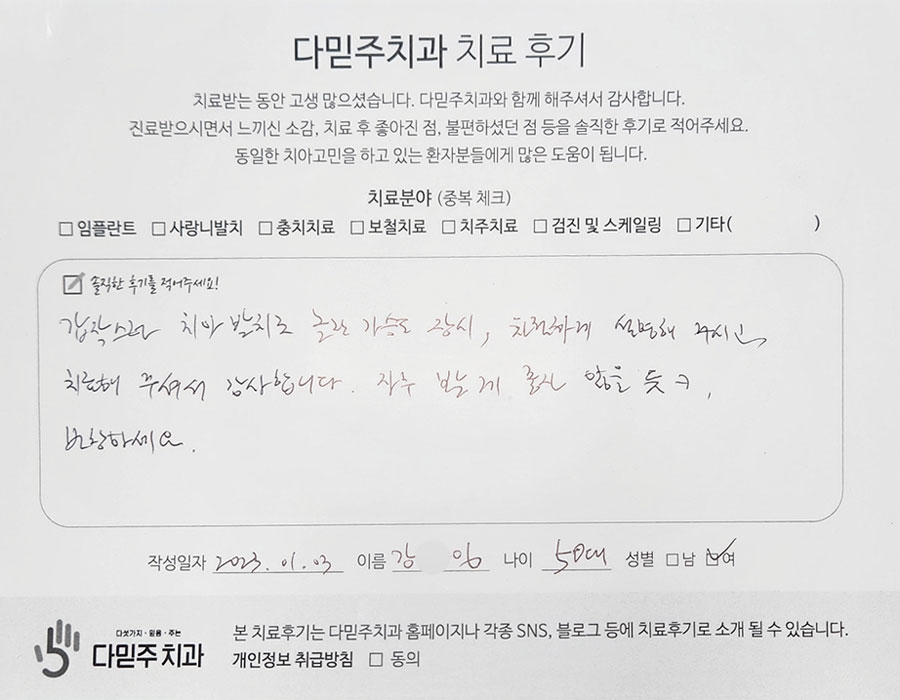 다믿주치과 치료 후기
치료받는 동안 고생 많으셨습니다. 다믿주치과와 함께 해주셔서 감사합니다.
진료받으시면서 느끼신 소감, 치료 후 좋아진 점, 불편하셨던 점 등을 솔직한 후기로 적어주세요.
동일한 치아고민을 하고 있는 환자분들에게 많은 도움이 됩니다.
치료분야 (중복 체크)
□ 임플란트 □ 사랑니발치 □ 충치치료 □ 보철치료 □ 치주치료 □ 검진 및 스케일링 □ 기타( )
솔직한 후기를 적어주세요!
갑작스런 치아 발치로 놀란 가슴도 잠시, 친절하게 설명해 주시고,
치료해 주셔서 감사합니다. 자주 뵐 게 좋진 않을 듯ㅋ,
번창하세요.
작성일자 2023. 01. 03 이름 강 임 나이 50대 성별 □남 ☑여
다섯가지·믿음·주는
다믿주치과
본 치료후기는 다믿주치과 홈페이지나 각종 SNS, 블로그 등에 치료후기로 소개 될 수 있습니다.
개인정보 취급방침 □ 동의